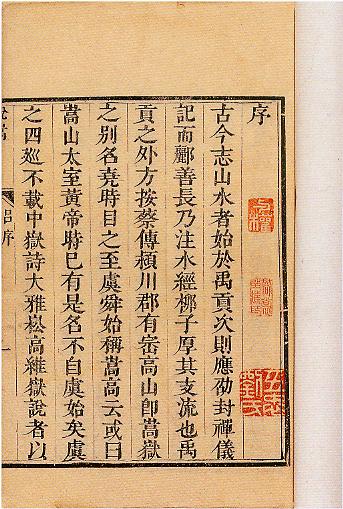 序
古今志山水者始於禹貢次則應劭封禪儀
記而酈善長乃注水經栁子厚其支流也禹
貢之外方按蔡傳頴川郡有崈高山卽嵩嶽
之别名堯時目之至虞舜始稱嵩高云或曰
嵩山太室黃帝時巳有是名不自虞始矣虞
之四廵不載中嶽詩大雅崧高維嶽說者以
說嵩
吕序
一